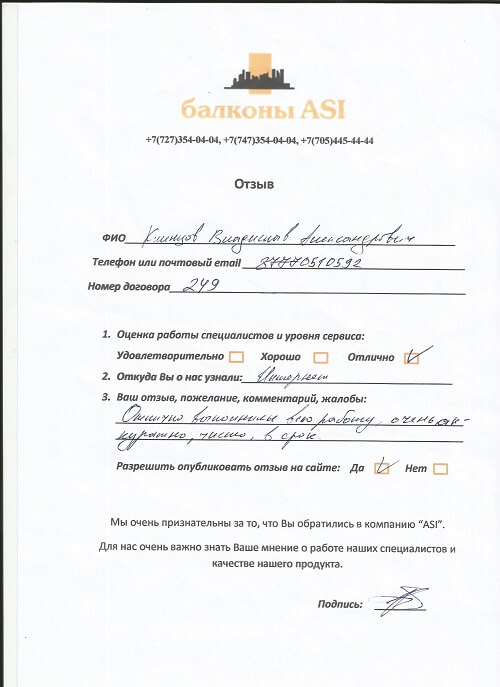 балконы ASI
+7(727)354-04-04, +7(747)354-04-04, +7(705)445-44-44
Отзыв
ФИО Климцов Владислав Александрович
Телефон или почтовый email 87770510592
Номер договора 249
1. Оценка работы специалистов и уровня сервиса:
Удовлетворительно Хорошо Отлично
2. Откуда Вы о нас узнали: Интернет
3. Ваш отзыв, пожелание, комментарий, жалобы:
Отлично выполнили всю работу, очень ак-
куратно, чисто, в срок.
Разрешить опубликовать отзыв на сайте: Да Нет
Мы очень признательны за то, что Вы обратились в компанию “ASI”.
Для нас очень важно знать Ваше мнение о работе наших специалистов и
качестве нашего продукта.
Подпись: